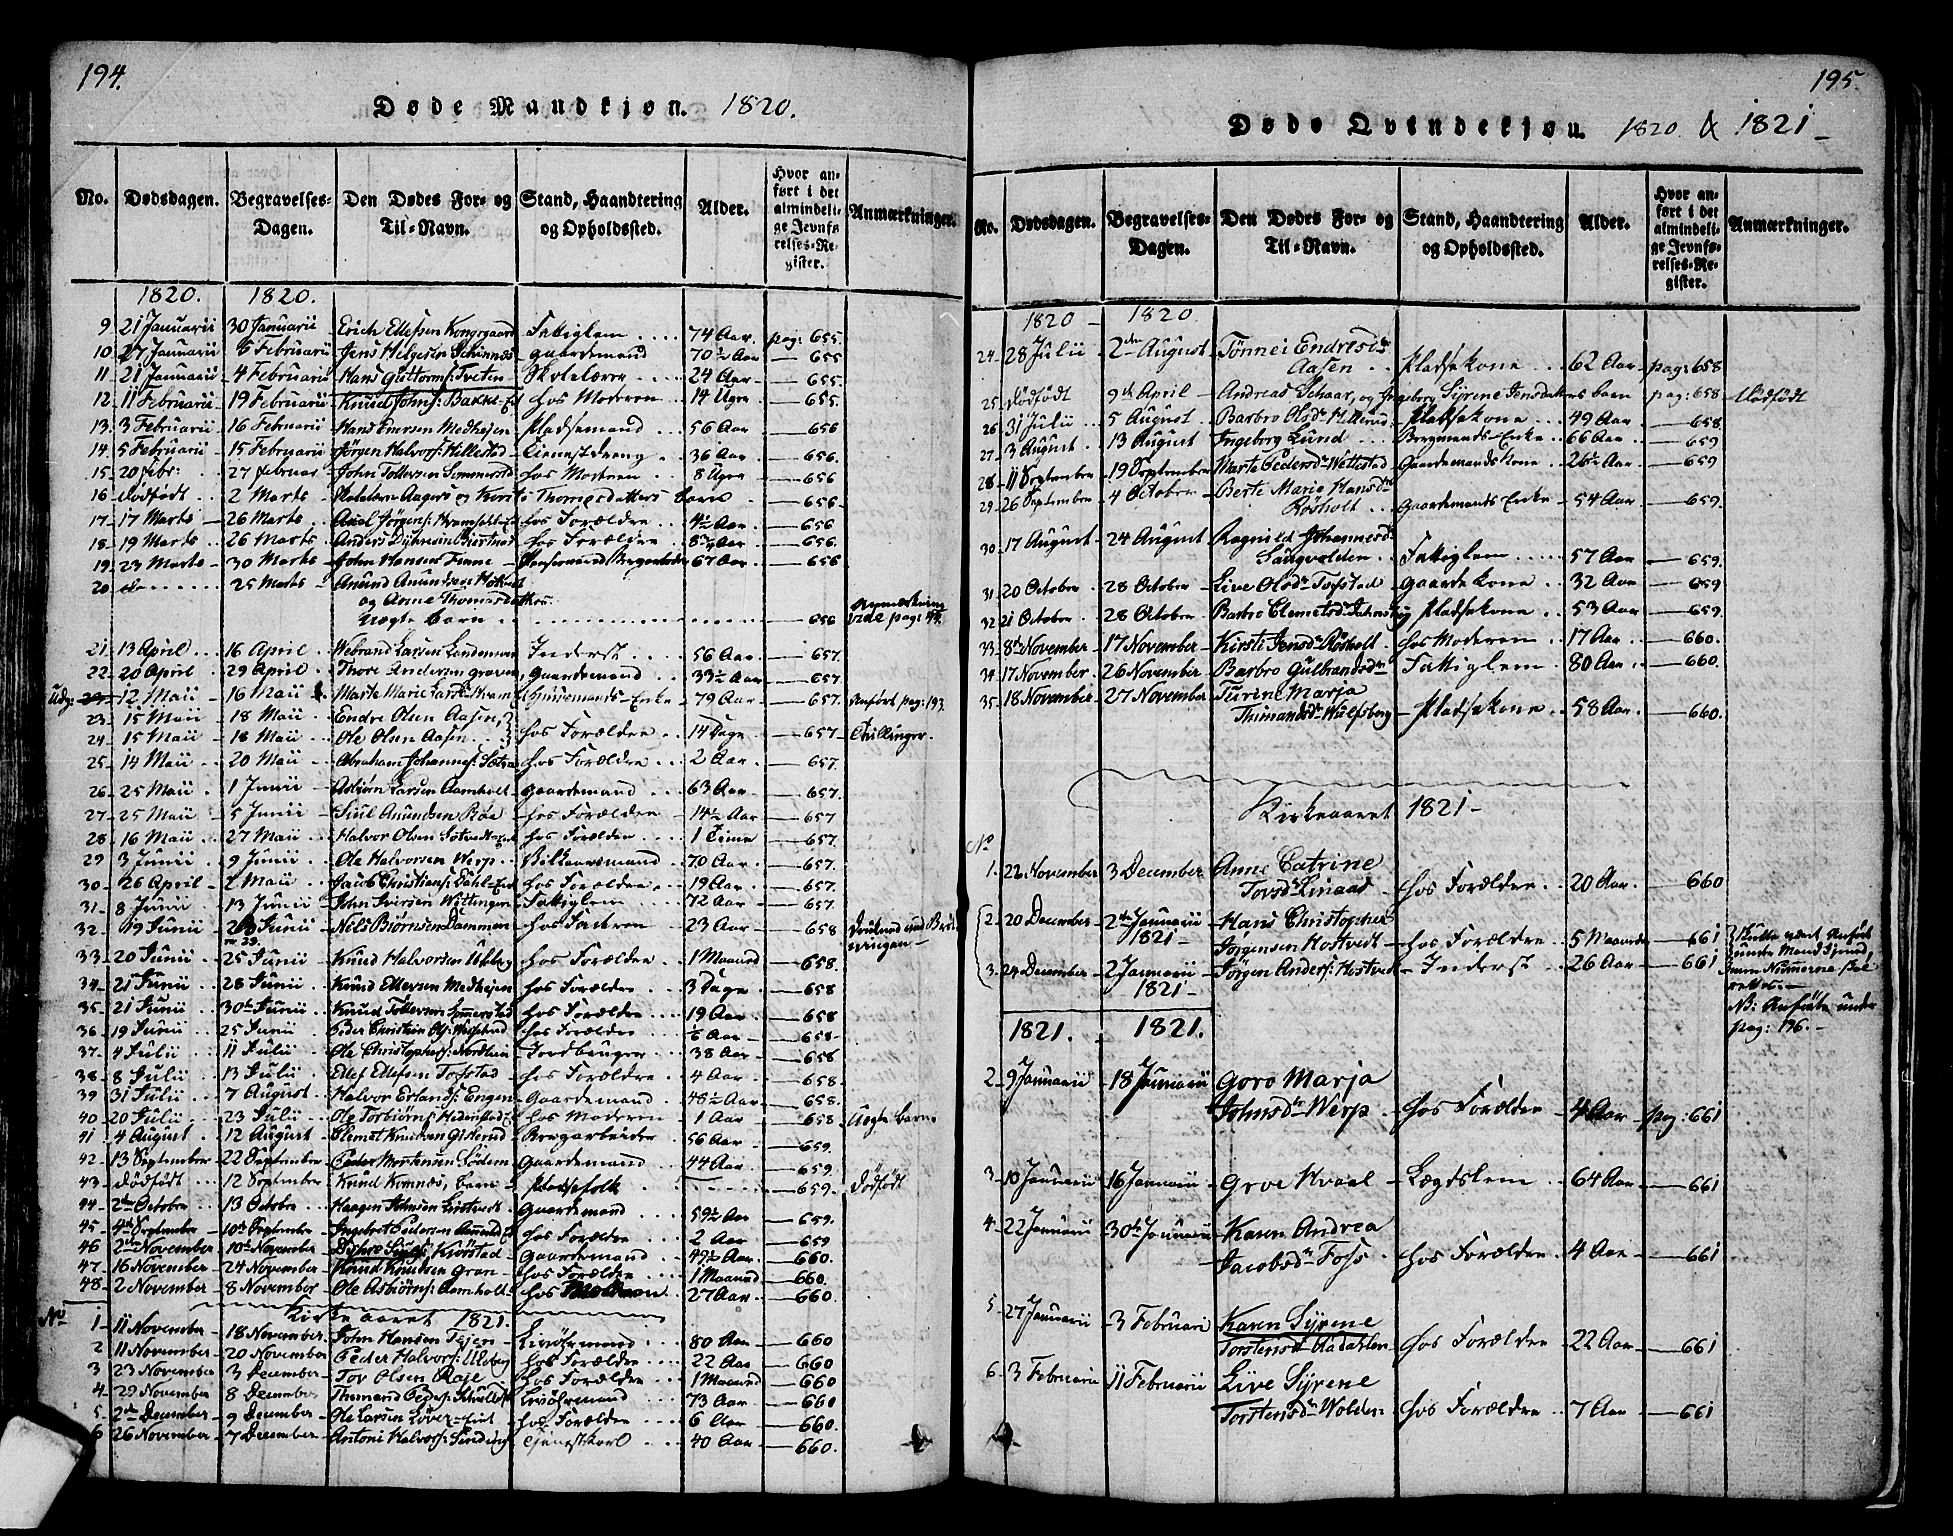 194.
Døde Mandkjøn. 1820.
No. Dødsdagen. Begravelses-Dagen. Den Dødes For- og Til-Navn. Stand, Haandtering og Opholdssted. Alder. Hvor anført i det almindelige Jevnførelses-Register. Anmærkninger.
1820. 1820.
9 21 Januarii 30 Januarii Erich Ellefsen Kongsgaard Fattiglem 74 Aar pag: 655.
10 27 Januarii 6 Februarii Jens Helgesen gaardemand 70½ Aar 655
11 21 Januarii 4 Februarii Hans Guttorms: Tveten Skolelærer 24 Aar 655.
12 11 Februarii 19 Februarii Knud Johns: Bakke-Eid hos Moderen 14 Uger 655.
13 3 Februarii 16 Februarii Hans Medhejen Pladsemand 56 Aar 656
14 5 Februarii 15 Februarii Jørgen Halvors: Hillestad Tienistdreng 36 Aar 656.
15 20 Febr: 27 Februar John Tollefsen Sommerstad hos Moderen 8 Uger 656
16 Dødfødt 2 Marts Aagers og Kirsti Thomasdatters barn 656
17 17 Marts 26 Marts Axel Jørgens: hos Forældre 4½ Aar 656
18 19 Marts 26 Marts Anders hos Forældre Aar 656.
19 23 Marts 30 Marts John Hansen 67 Aar 656
20 do 25 Marts Anund Anundsen
og Anne Thomasdatters
uægte barn 656 Anmerkning vide pag: 49.
21 13 April 16 April Webrand Larsen Inderst 56 Aar 657.
22 20 April 29 April Thore Andersen gaardemand 33½ Aar 657
Udg: 12 Maii 16 Maii Marte Marie Huusmands-Enke 79 Aar 657. Anført pag: 193
23 15 Maii 18 Maii Endre Olsen Aasen,
24 15 Maii 18 Maii Ole Olsen Aasen hos Forældre 14 Dage 657 Tvillinger.
25 14 Maii 20 Maii Abraham Johannes: hos Forældre 2 Aar 657.
26 25 Maii 1 Junii Asbiørn Larsen Aamholt gaardemand 63 Aar 657.
27 25 Maii 5 Junii Anundsen Røe hos Forældre 14½ Aar 657
28 16 Maii 27 Maii Halvor Olsen hos Forældre 1 Time 657.
29 3 Junii 9 Junii Ole Halvorsen Werp Vilkaarsmand 70 Aar 657.
30 26 April 2 Maii Jacob Christians: Dahl-Eid hos Forældre 19 Aar 657.
31 8 Junii 13 Junii John Iversen Wittingen Fattiglem 72 Aar 657.
32 19 Junii Junii Niels Biørnsen Dammen hos Faderen 23 Aar 658
33 20 Junii 25 Junii Knud Halvorsen Ulsberg hos Forældre 1 Maaned 658.
34 25 Junii 28 Junii Knud Ellefsen Medhejen hos Forældre 3 Dage 658
35 21 Junii 30te Junii Knud Tollefsen Sommerstad hos Forældre 19 Aar 658
36 19 Junii 25 Junii Peder Christian Ols: hos Forældre Aar 658
37 4 Julii 11 Julii Ole Christophers: Jordbruger 38 Aar 658
38 8 Julii 13 Julii Ellef Ellefsen Tofstad hos Forældre 4 Aar 658.
39 31 Julii 7 August Halvor Erlands: Engen Gaardemand 48½ Aar 658.
40 20 Julii 23 Julii Ole Torbiørns: Hedenstad hos Moderen 1 Aar 658 Uægte Barn
41 4 August 12 August Clemet Knudsen Gisterud Bergarbeider 56 Aar 659.
42 13 September 22 September Peder Mortensen Sødem Gaardemand 44 Aar 659
43 Dødfødt 12 September Knud Komnæs, barn Pladsefolk 659. Dødfødt
44 2den October 13 October Haagen Johnsen Listvedt Gaardemand 59½ Aar 659.
45 4de September 10de September Ingebret Pedersen hos Forældre 2 Aar 659
46 2den November 10de November Kiørstad Gaardemand Aar 660.
47 16 November 24 November Knud Knudsen Gran hos Forældre 1 Maaned 660.
48 2 November 8 November Ole Asbiørns: Aamholt hos Moderen 27 Aar 660.
No Kirkeaaret 1821.
1 11 November 18 November John Hansen Tejen Livøremand 80 Aar 660
2 11 November 20 November Peder Halvors: Ulsberg hos Forældre 22 Aar 660
3 23 November 3 December Tov Olsen Raje hos Forældre 1 Maaned 660
4 29 November 8 December Thomand Peders: Livøremand 73 Aar 660
5 2den December 9 December Ole Larsen Løver-Eiet hos Forældre 6 Aar 660.
6 26 November 7 December Antoni Halvors: Tienestkarl 40 Aar 660.
195.
Døde Qvindekjøn. 1820 & 1821
No. Dødsdagen. Begravelses-Dagen. Den Dødes For- og Til-Navn. Stand, Haandtering og Opholdssted. Alder. Hvor anført i det almindelige Jevnførelses-Register. Anmærkninger.
1820 1820
24 28 Julii 2den August Tønnei Endresdr
Aasen Pladsekone 62 Aar pag: 658
25 Dødfødt 9de April Andreas Schaar, og Ingeborg Syrene Jensdatters barn pag: 658 Dødfødt
26 31 Julii 5 August Barbro Olsdr Hellerud Pladsekone 49 Aar 658.
27 3 August 13 August Ingeborg Lund Bergmands-Enke 66 Aar 659
28 11 September 19 September Marte Pedersdr Wettestad Gaardemands Kone 26½ Aar 659
29 26 September 4 October Berte Marie Hansdr
Røsholt Gaardemands Enke 54 Aar 659.
30 17 August 24 August Ragnild Johannesdr
Langvolden Fattiglem 57 Aar 659.
31 20 October 28 October Live Olsdr Tofstad gaardekone 32 Aar 659
32 21 October 28 October Barbro Clemetsdr Pladsekone 53 Aar 659.
33 8de November 17 November Kirsti Jensdr Røsholt hos Moderen 17 Aar 660.
34 17 November 26 November Barbro Gulbrandsdr Fattiglem 80 Aar 660.
35 18 November 27 November Turine Marja
Thimandsdr Wulfsberg Pladsekone 58 Aar 660.
Kirkeaaret 1821
No
1. 22 November 3 December Anne Catrine
Tovsdr Linaas hos Forældre 20 Aar 660
2. 20 December 2den Januarii 1821 Hans Christopher
Jørgensen Hostvedt hos Forældre 5 Maaneder 661
3. 24 December 2 Januarii 1821 Jørgen Anders: Hostvedt Inderst 26 Aar 661
NB: Anførte under pag: 196.
1821. 1821.
2 9 Januarii 18 Januarii Goro Marja
Johnsdr Werp hos Forældre 4 Aar pag: 661
3 10 Januarii 16 Januarii Groe Kvaal Lægdslem 64 Aar 661
4 22 Januarii 30te Januarii Karen Andrea
Jacobsdr Foss hos Forældre 4 Aar 661
5 27 Januarii 3 Februarii Karen Syrene
Torstensdr Aasdahlen hos Forældre 22 Aar 661
6 3 Februarii 11 Februarii Live Syrene
Torstensdr Wolden hos Forældre 7 Aar 661